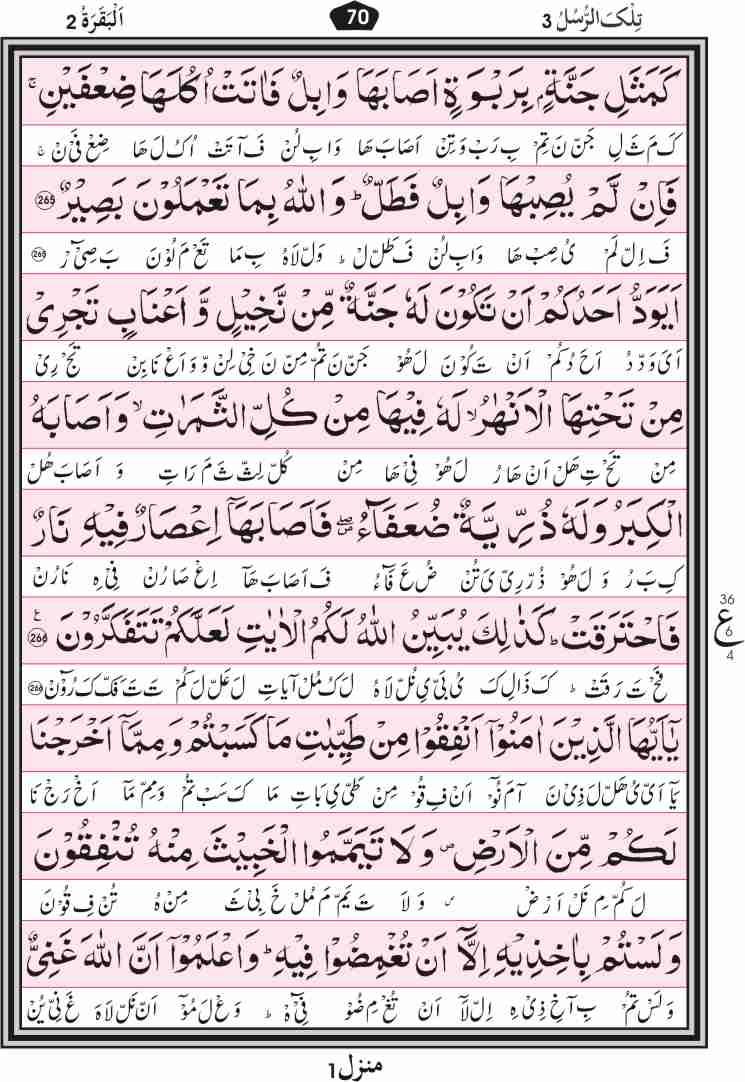 تِلْكَ الرُّسُلُ 3
70
اَلْبَقَرَةُ 2
كَمَثَلِ جَنَّةٍۭ بِرَبْوَةٍ اَصَابَهَا وَابِلٌ فَاٰتَتْ اُكُلَهَا ضِعْفَيْنِ ۚ
كَ مَ ثَ لِ جَنّ نَ تِمْ بِ رَبْ وَ تِنْ اَصَابَ هَا وَابِ لُنْ فَ آ تَتْ اُ كُ لَ هَا ضِعْ فَىْ نْ ۚ
فَاِنْ لَّمْ يُصِبْهَا وَابِلٌ فَطَلٌّ ؕ وَاللّٰهُ بِمَا تَعْمَلُوْنَ بَصِيْرٌ ﴿265﴾
فَ اِلّ لَمْ ىُ صِبْ هَا وَابِ لُنْ فَ طَلّ لْ ؕ وَلّ لَاهُ بِ مَا تَعْ مَ لُوْنَ بَ صِىْٓ رْ ﴿265﴾
اَيَوَدُّ اَحَدُكُمْ اَنْ تَكُوْنَ لَهٗ جَنَّةٌ مِّنْ نَّخِيْلٍ وَّ اَعْنَابٍ تَجْرِىْ
اَ ىَ وَدّ دُ اَحَ دُكُمْ اَنْ تَ كُوْنَ لَ هُوْ جَنّ نَ تُمّ مِنْ نَ خِىْ لِنْ وّ وَ اَعْ نَا بِنْ تَجْ رِىْ
مِنْ تَحْتِهَا الْاَنْهٰرُ ۙ لَهٗ فِيْهَا مِنْ كُلِّ الثَّمَرٰتِ ۙ وَاَصَابَهُ
مِنْ تَحْ تِ هَلْ اَنْ هَا رُ لَ هُوْ فِىْ هَا مِنْ كُلّ لِثّ ثَ مَ رَاتِ وَ اَصَابَ هُلْ
الْكِبَرُ وَلَهٗ ذُرِّيَّةٌ ضُعَفَآءُ ۖ فَاَصَابَهَاۤ اِعْصَارٌ فِيْهِ نَارٌ
كِ بَ رُ وَ لَ هُوْ ذُرّ رِىّ ىَ تُنْ ضُ عَ فَآءُ فَ اَصَابَ هَآ اِعْ صَارُنْ فِىْ هِ نَارُنْ
فَاحْتَرَقَتْ ؕ كَذٰلِكَ يُبَيِّنُ اللّٰهُ لَكُمُ الْاٰيٰتِ لَعَلَّكُمْ تَتَفَكَّرُوْنَ ﴿266﴾ ع
فَحْ تَ رَقَتْ ؕ كَ ذَالِ كَ ىُ بَىّ ىِ نُلّ لَاهُ لَ كُ مُلْ آيَاتِ لَ عَلّ لَ كُمْ تَ تَ فَكّ كَ رُوْٓنْ ﴿266﴾
ع 36 6 4
يٰۤاَيُّهَا الَّذِيْنَ اٰمَنُوْۤا اَنْفِقُوْا مِنْ طَيِّبٰتِ مَا كَسَبْتُمْ وَمِمَّاۤ اَخْرَجْنَا
يَآ اَىّ ىُ هَلّ لَ ذِىْ نَ آمَ نُوْٓ اَنْ فِ قُوْ مِنْ طَىّ ىِ بَاتِ مَا كَ سَبْ تُمْ وَمِمّ مَآ اَخْ رَجْ نَا
لَكُمْ مِّنَ الْاَرْضِ ۪ وَلَا تَيَمَّمُوا الْخَبِيْثَ مِنْهُ تُنْفِقُوْنَ
لَ كُمّ مِ نَلْ اَرْضْ ۪ وَ لَا تَ يَمّ مَ مُلْ خَ بِىْ ثَ مِنْ هُ تُنْ فِ قُوْنَ
وَلَسْتُمْ بِاٰخِذِيْهِ اِلَّاۤ اَنْ تُغْمِضُوْا فِيْهِ ؕ وَاعْلَمُوْۤا اَنَّ اللّٰهَ غَنِىٌّ
وَ لَسْ تُمْ بِ آخِ ذِىْ هِ اِلّ لَآ اَنْ تُغْ مِ ضُوْ فِىْٓ هْ ؕ وَعْ لَ مُوْٓ اَنّ نَلّ لَاهَ غَ نِىّ يُنْ
منزل 1